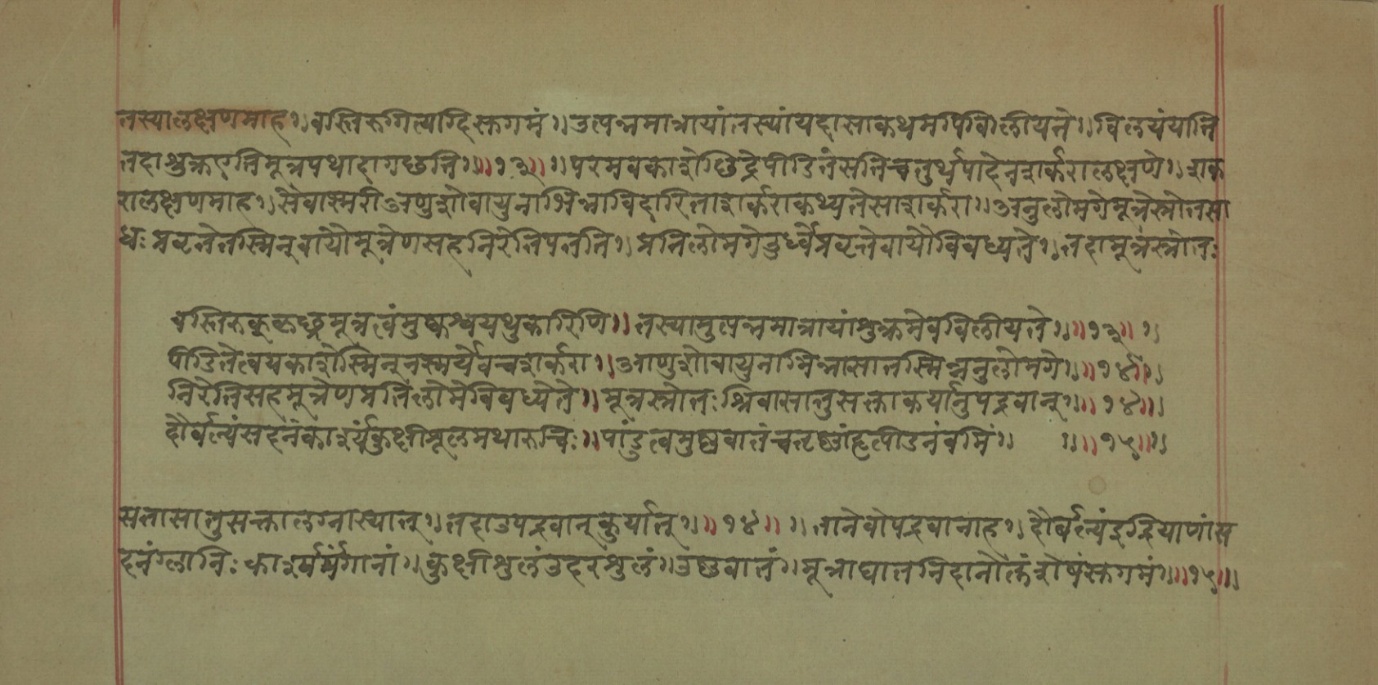 तस्यालक्षणमाह ।। बस्तिरुगित्यादिस्तगमं ।। उत्पन्नमात्रायां तस्यां यदासाकथमपिविलीयते ।। विलयंयाति
तदाशुक्रएतिमूत्रपथादागछति ।। ।।१३।। ।। परमवकाशेछिद्रेपीडितेसतिचतुर्थपादेनशर्करालक्षणे ।। शर्क
रालक्षणमाह ।। सैवाश्मरीअणुशोवायुनाभिन्नाविदारिताशर्कराकथ्यतेसाशर्करा ।। अनुलोमगेमूत्रेस्रोतसा
धः प्रवृत्तेतस्मिन्वायौमूत्रेणसहनिरेतिपतति ।। प्रतिलोमगेउर्ध्वंप्रवृत्तेवायौविबध्यते ।। तदामूत्रस्रोतः
बस्तिरुक्कृछ्रमूत्रत्वंमुष्कश्वयथुकारिणि ।। तस्यामुत्पन्नमात्रायांशुक्रमेवविलीयते ।। ।।१३।। ।।
पीडितेत्ववकाशेस्मिन्नस्मर्येवचशर्करा ।। आणुशोवायुनाभिन्नासातस्मिन्ननुलोमगे ।। ।।१४।। ।।
निरेतिसहमूत्रेणप्रतिलोमेविबध्यते ।। मूत्रस्रोतः श्रितासातुसक्ताकुर्यादुपद्रवान् ।। ।।१४।। ।।
दौर्बल्यंसदनंकार्श्यंकुक्षीशूलमथारुचिः ।। पांडुत्वमुष्णवातंचतृष्णांहृत्पीडनंवमिं ।। ।। ।।१५।। ।।
सतासातुसक्तालग्नास्यात् ।। तदाउपद्रवान्कुर्यात् ।। ।।१४।। ।। तानेवोपद्रवानाह ।। दौर्बल्यंइन्द्रियाणांस
दनंग्लानिः कार्श्यमंगानां ।। कुक्षीशुलंउदरंशुलं ।। उष्णवातं ।। मूत्राघातनिदानोक्तंशेषंस्तगमं ।। ।।१५।। ।।